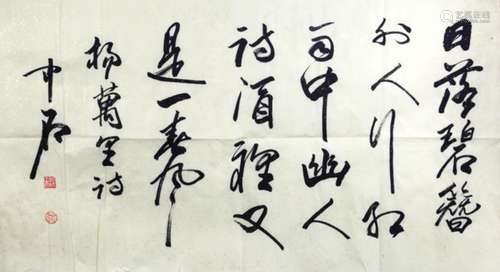 日落碧簪
外人行红
雨中幽人
诗酒裡又
是一春风
楊萬里诗
中石